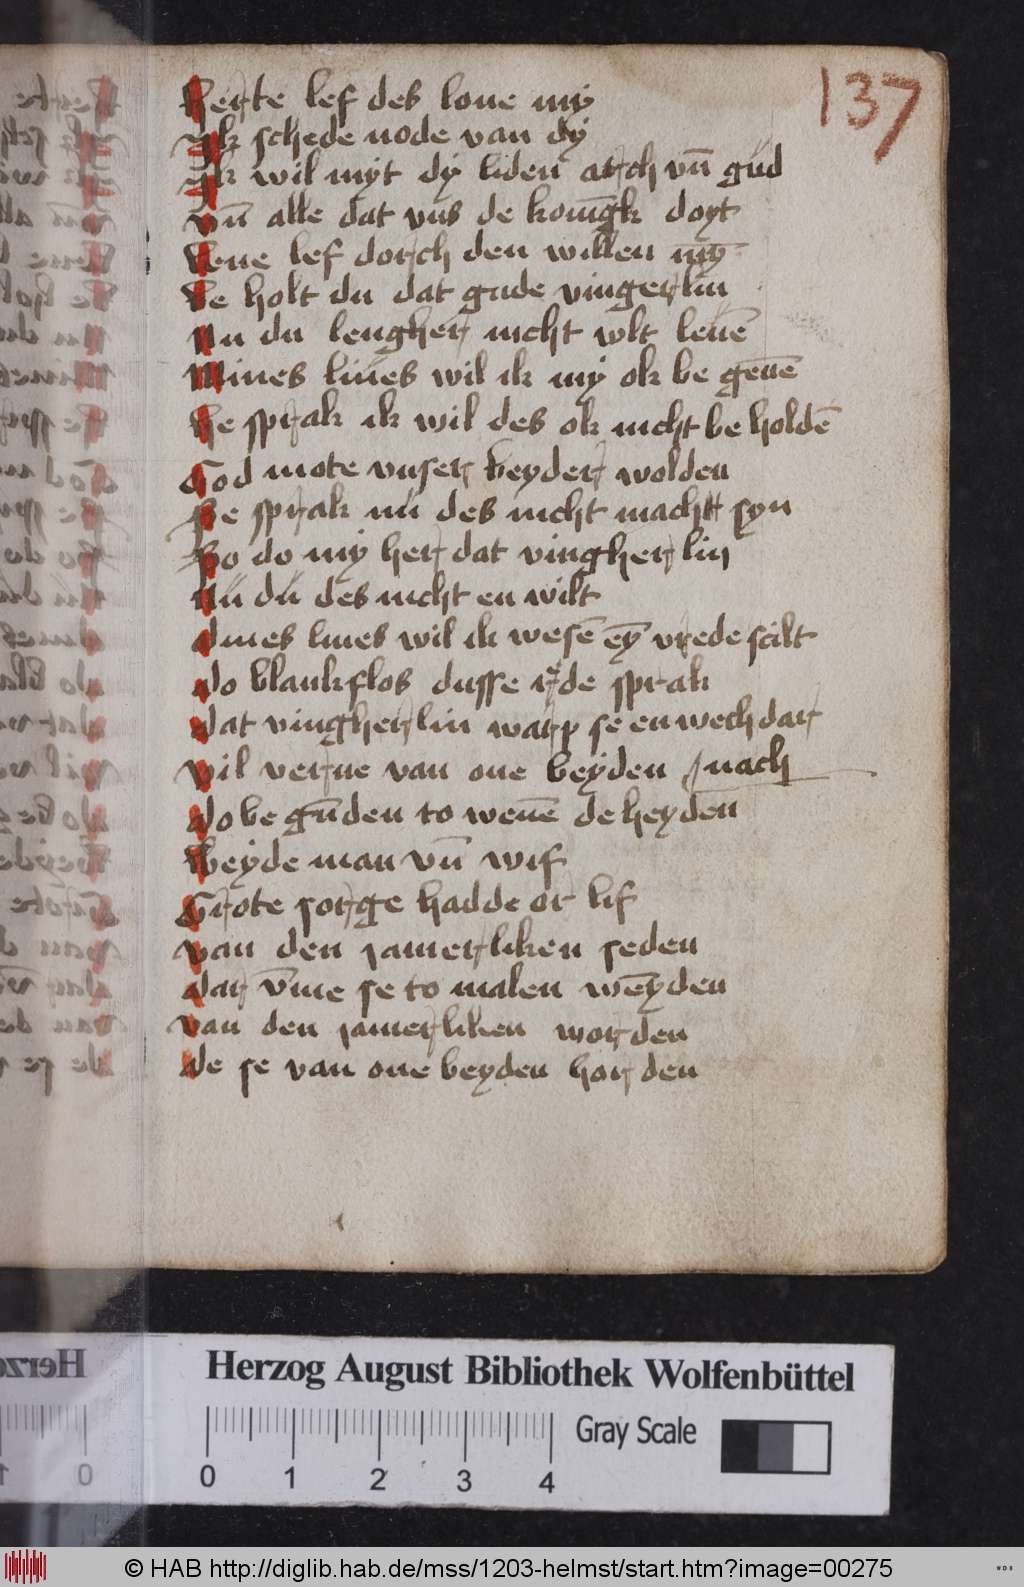 137
Herte lef des loue my
Jk schede node van dy
Jk wil myt dy liden arch vn̄ gůd
vn̄ alle dat vns de konīgk doyt
Leue lef dorch den willen mȳ
Be holt du dat gude vingerlin
Nu du lengher nicht wlt leuē
Mines liues wil ik my ok be geuē
He sprak ik wil des ok nicht be holdē
God mote vnser beyder wolden
Se sprak nů des nicht macht syn
So do my her dat vingher lin
Nů dů des nicht en wilt
dines liues wil ik wesē eȳ vrede scilt
do blankflos dusse rede sprak
dat vingher lin warp se en wech dar
vil verne van one beyden nach
do be gūden to wenē de heyden
Beyde man vn̄ wif
Grote sorge hadde or lif
van den jamerliken seden
dar v̄me se to malen wēyden
van den jamerliken worden
de se van one beyden horden
Herzog August Bibliothek Wolfenbüttel
Gray Scale
0 1 2 3 4
© HAB http://diglib.hab.de/mss/1203-helmst/start.htm?image=00275